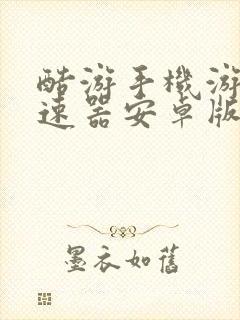 酷游手機游
速器安卓版
墨衣如舊